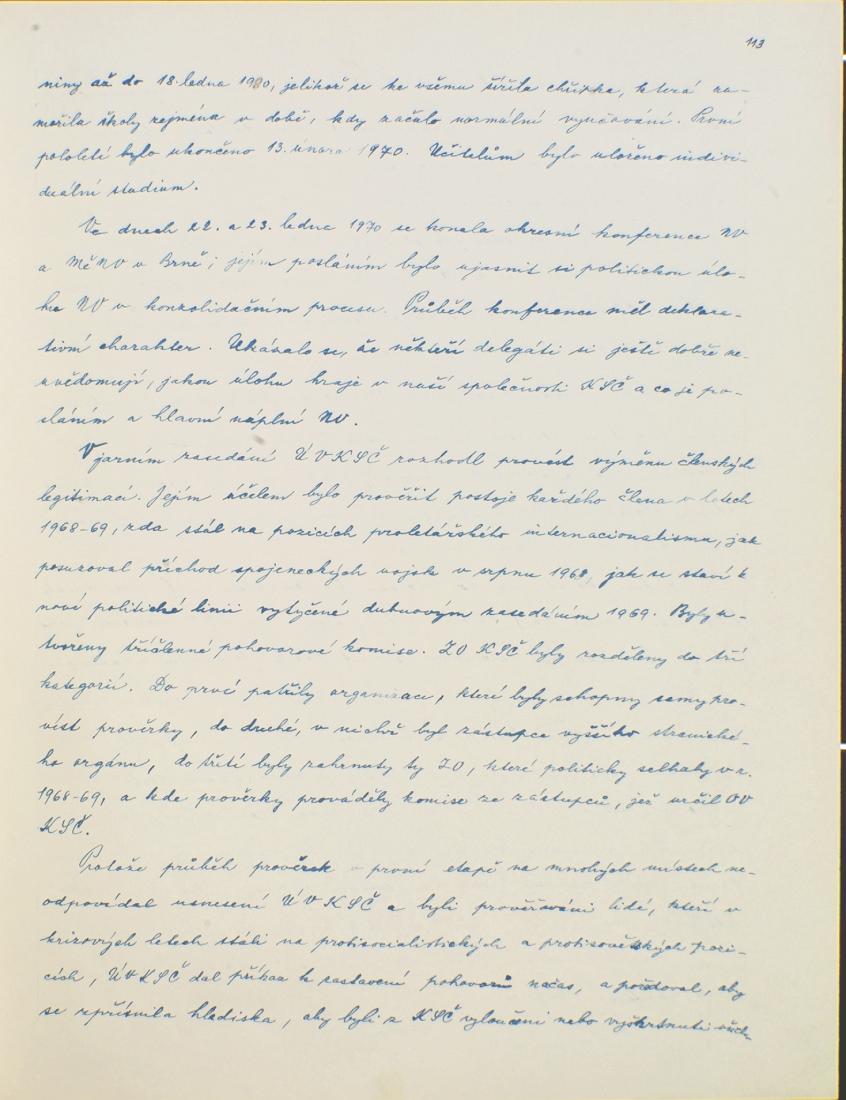 113
niny až do 18. ledna 1970, jelikož se ke všemu šířila chřipka, která za-
mořila školy zejména v době, kdy začalo normální vyučování. První
pololetí bylo ukončeno 13. února 1970. Učitelům bylo uloženo indivi-
duální studium.
Ve dnech 22. a 23. ledna 1970 se konala okresní konference NV
a MěNV v Brně; jejím posláním bylo ujasnit si politickou úlo-
hu NV v konzolidačním procesu. Průběh konference měl deklara-
tivní charakter. Ukázalo se, že někteří delegáti si ještě dobře ne-
uvědomují, jakou úlohu hraje v naší společnosti KSČ a co je po-
sláním a hlavní náplní NV.
V jarním zasedání ÚVKSČ rozhodl provést výměnu členských
legitimací. Jejím účelem bylo prověřit postoje každého člena v letech
1968-69, zda stál na pozicích proletářského internacionalismu, jak
posuzoval příchod spojeneckých vojsk v srpnu 1968, jak se staví k
nové politické linii vytyčené dubnovým zasedáním 1969. Byly u-
tvořeny tříčlenné pohovorové komise. ZO KSČ byly rozděleny do tří
kategorií. Do prvé patřily organizace, které byly schopny samy pro-
vést prověrky, do druhé, v nichž byl zástupce vyššího stranické-
ho orgánu, do třetí byly zahrnuty ty ZO, které politicky selhaly v r.
1968-69, a kde prověrky prováděly komise ze zástupců, jež určil OV
KSČ.
Potože průběh prověrek v první etapě na mnohých místech ne-
odpovídal usnesení ÚVKSČ a byli prověřováni lidé, kteří v
krizových letech stáli na protisocialistických a protisovětských pozi-
cích, ÚVKSČ dal příkaz k zastavení pohovorů načas, a požadoval, aby
se zpřísnila hlediska, aby byli z KSČ vyloučeni nebo vyškrtnuti